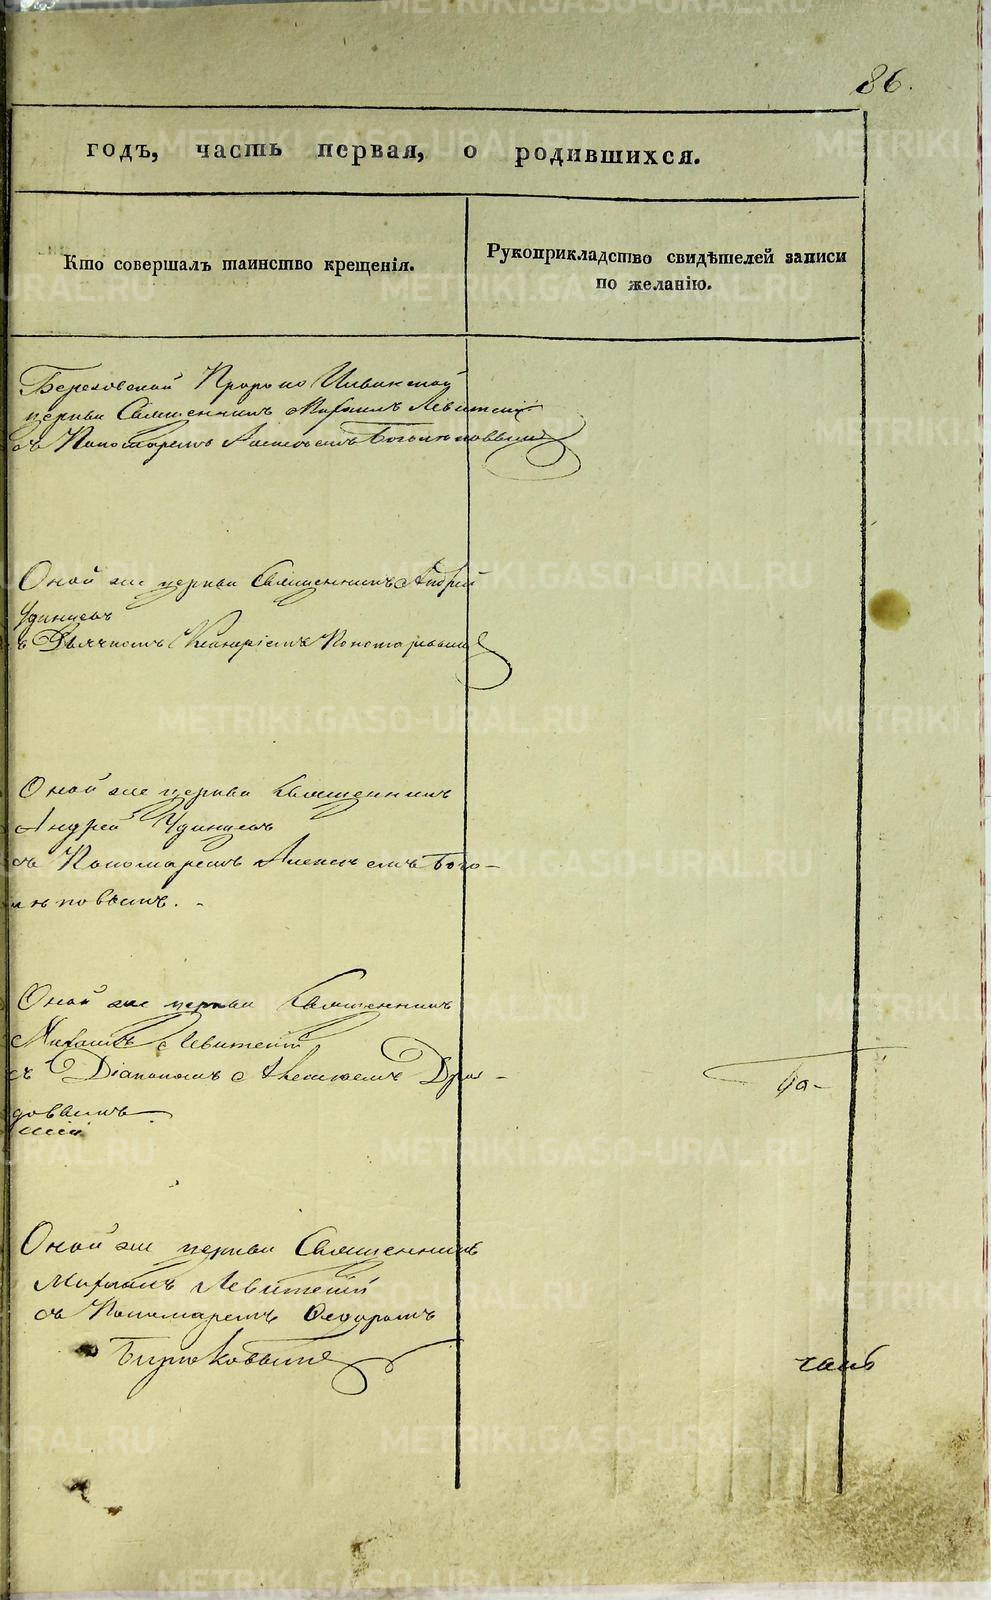 86.
годъ, часть первая, о родившихся.
Кто совершалъ таинство крещенія.
Рукоприкладство свидѣтелей записи
по желанію.
Березовской Пророко Ильинской
церкви Священникъ Михаилъ Левитскій
съ Пономаремъ Алексѣемъ Боголюповымъ
Оной же церкви Священникъ Андрей
Удинцовъ
съ Дьячкомъ Пономаревымъ
Оной же церкви Священникъ
Андрей Удинцовъ
съ Пономаремъ Алексѣемъ Бого-
люповымъ. -
Оной же церкви Священникъ
Михаилъ Левитскій
съ Діакономъ Алексѣемъ
Оной же церкви Священникъ
Михаилъ Левитскій
съ Пономаремъ Ѳедоромъ
Бирюковымъ
METRIKI.GASO-URAL.RU